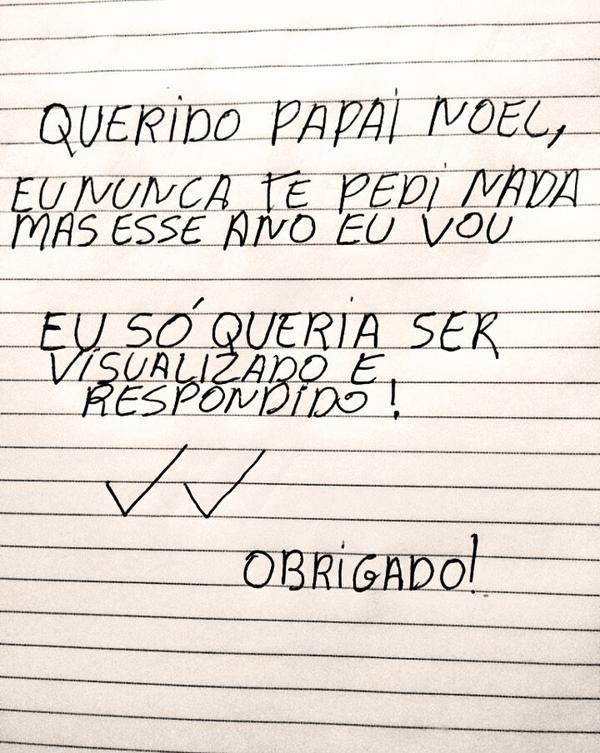 QUERIDO PAPAI NOEL,
EU NUNCA TE PEDI NADA
MAS ESSE ANO EU VOU
EU SÓ QUERIA SER
VISUALIZADO E
RESPONDIDO!
✓✓
OBRIGADO!